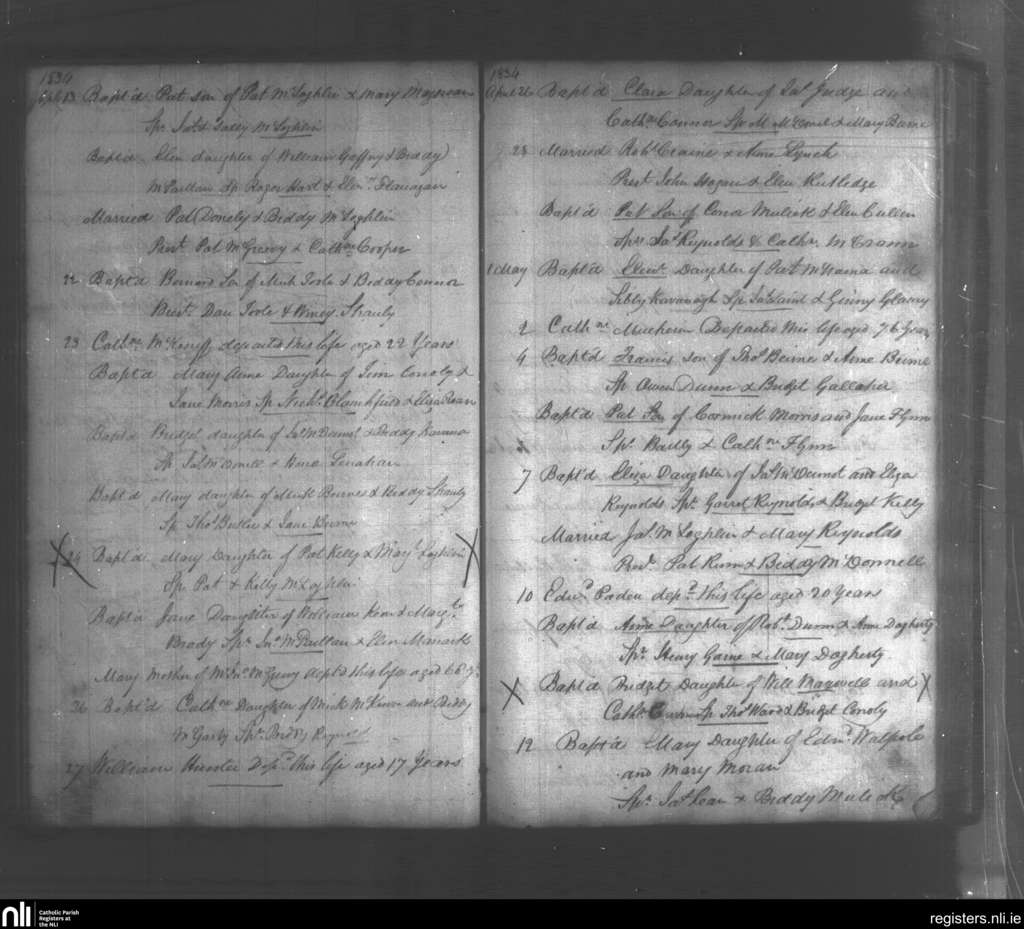 1834
13 Bapt'd Pat son of Pat McLoghlin & Mary
Sps Jas & Sally McLoghlin
Bapt'd Ellen daughter of William Gaffny & Biddy
Sp Roger Hart & Elenr Flanagan
Married Pat Donely & Biddy McLoghlin
Prest Pat McGreevy & Cathne Cooper
22 Bapt'd Bernard Son of Mick Toole & Biddy Connor
Prest Dan Toole & Hanly
23 Cathne departed this life aged 22 Years
Bapt'd Mary Anne Daughter of Tim Conoly &
Jane Morris Sp Nichs Blanchfield &
Bapt'd Bridget daughter of Jas McDermot & Biddy
Sp Jas &
Bapt'd Mary daughter of Beirne & Biddy
Sp Thos Butler & Jane Beirne
24 Bapt'd Mary Daughter of Pat Kelly & Mary Loghlin
Sp Pat & Kelly McLoghlin
Bapt'd Jane Daughter of William & Margt
Brady Sps Jno McPartlan & Elen
Mary Mother of McGreevy dept'd this life aged 66 ys
26 Bapt'd Cathne Daughter of Mick and Biddy
McGarty Sps Reynolds
27 William Hunter Depd this life aged 17 Years
1834
April 26 Bapt'd Clara Daughter of Jas Judge and
Cathne Connor Sp M & Mary Beirne
28 Married Robt Craine & Anne Lynch
Prest John Hogan & Elen Rutledge
Bapt'd Pat Son of Conor Mulick & Elen Cullen
Sprs Jas Reynolds & Cathn McCrann
1 May Bapt'd Elenr Daughter of Pat and
Sibby Kavanagh Sp & Ginny Glancy
2 Cathne Departed this life aged 76 Years
4 Bapt'd Francis son of Thos Beirne & Anne Beirne
Sp Owen Dunn & Bridget Gallaher
Bapt'd Pat Son of Cormick Morris and Jane Flynn
Sps & Cathne Flynn
7 Bapt'd Eliza Daughter of Jas McDermot and Eliza
Reynolds Sps Garret Reynolds & Bridget Kelly
Married Jas McLoghlin & Mary Reynolds
Prest Pat & Biddy McDonnell
10 Edwd Paden depd this life aged 20 years
Bapt'd Anne Daughter of Robt Dunn & Anne Dogherty
Sps Henry & Mary Dogherty
Bapt'd Bridget Daughter of Will Maxwell and
Cathn Sp Thos Ward & Bridget Conoly
12 Bapt'd Mary Daughter of Edwd Walpole
and Mary Moran
Sps & Biddy Mulick
nli
Catholic Parish
Registers at
the NLI
registers.nli.ie